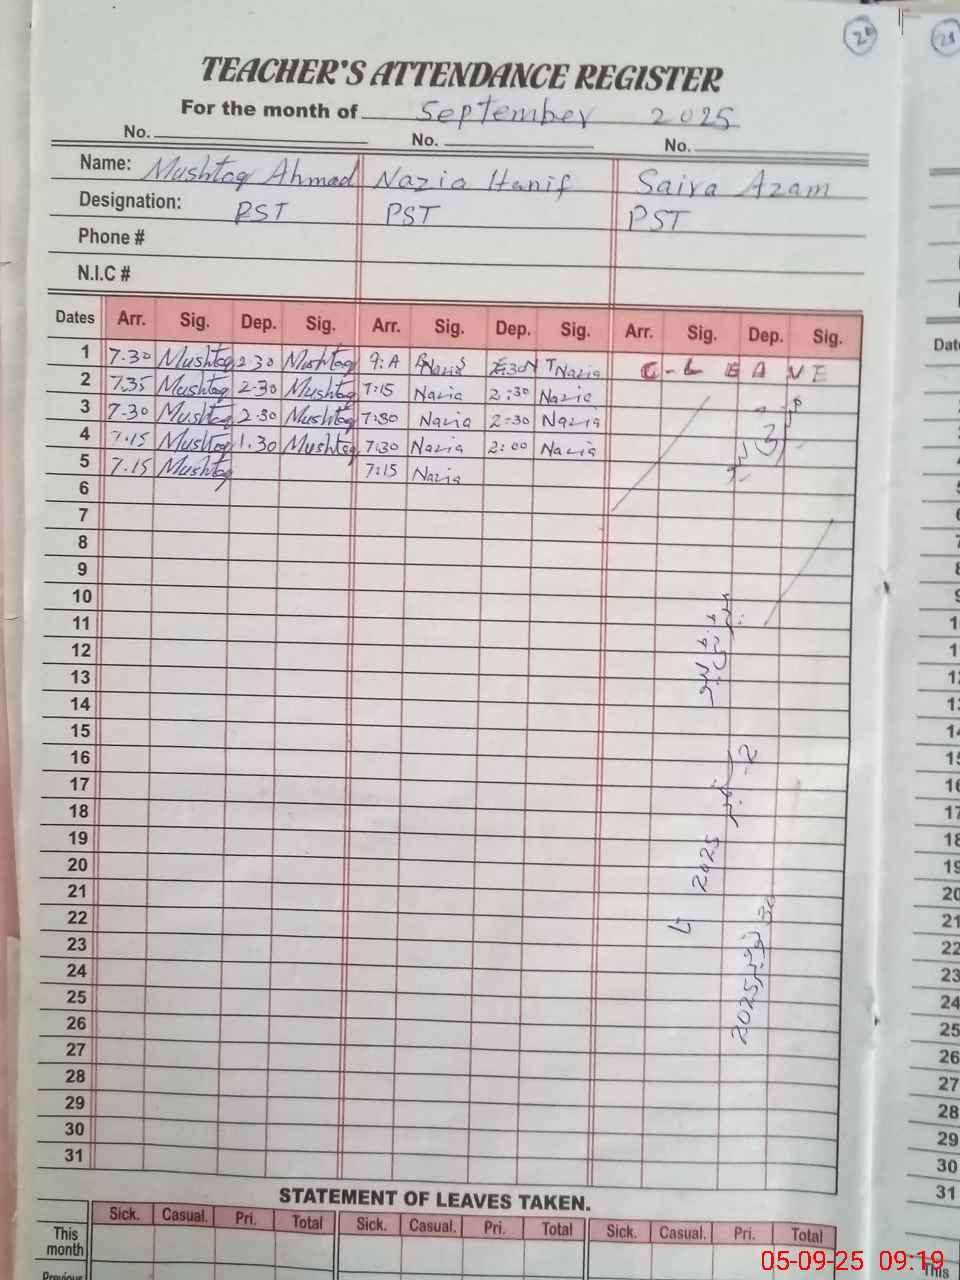 20
21
TEACHER'S ATTENDANCE REGISTER
For the month of September 2025
No. No. No.
Name: Mushtaq Ahmad Nazia Hanif Saira Azam
Designation: PST PST PST
Phone #
N.I.C #
Dates Arr. Sig. Dep. Sig. Arr. Sig. Dep. Sig. Arr. Sig. Dep. Sig.
1 7.30 Mushtaq 2 30 Mushtaq Nazia Nazia C-LEAVE
2 7.35 Mushtaq 2-30 Mushtaq 7:15 Nazia 2:30 Nazia
3 7-30 Mushtaq 2-30 Mushtaq 7:30 Nazia 2:30 Nazia
4 7.15 Mushtaq 1.30 Mushtaq 7:30 Nazia 2:00 Nazia
5 7.15 Mushtaq 7:15 Nazia
6
7
8
9
10
11
12
13
14
15
16
17
18
19
20
21
22
23
24
25
26
27
28
29
30
31
2025
2025
STATEMENT OF LEAVES TAKEN.
Sick. Casual. Pri. Total Sick. Casual. Pri. Total Sick. Casual. Pri. Total
This month
Previous
05-09-25 09:19
Date
15
16
17
18
19
20
21
22
23
24
25
26
27
28
29
30
31
This